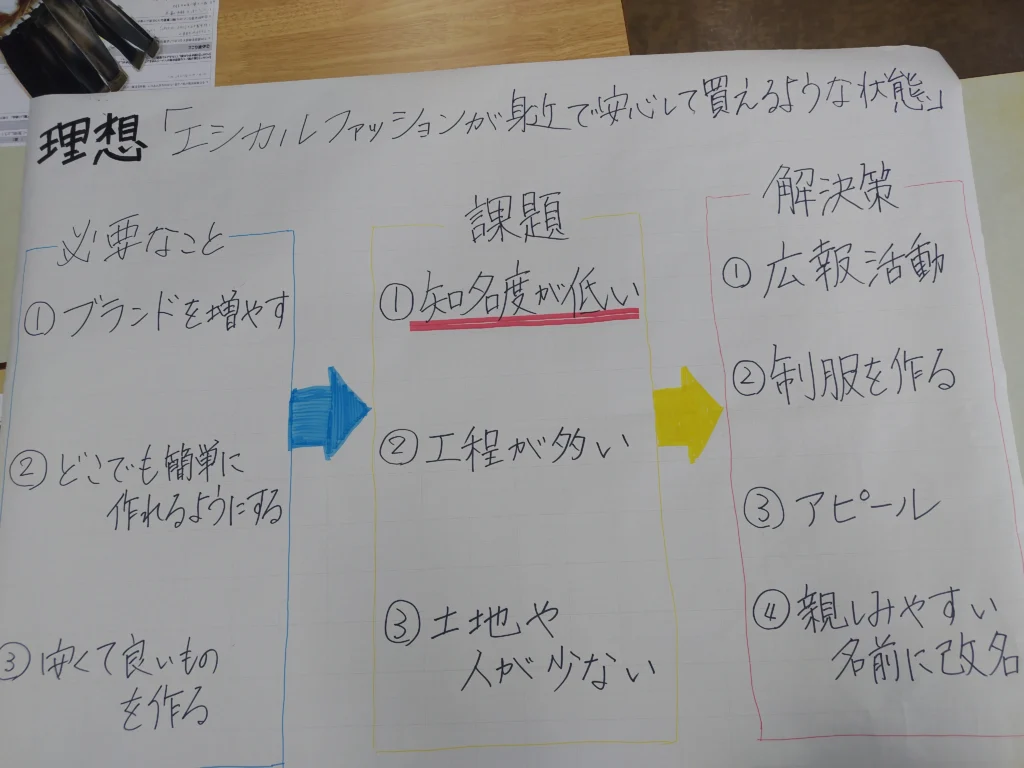 理想「エシカルファッションが身近で安心して買えるような状態」
必要なこと
①ブランドを増やす
②どこでも簡単に
作れるようにする
③安くて良いもの
を作る
課題
①知名度が低い
②工程が多い
③土地や
人が少ない
解決策
①広報活動
②制服を作る
③アピール
④親しみやすい
名前に改名